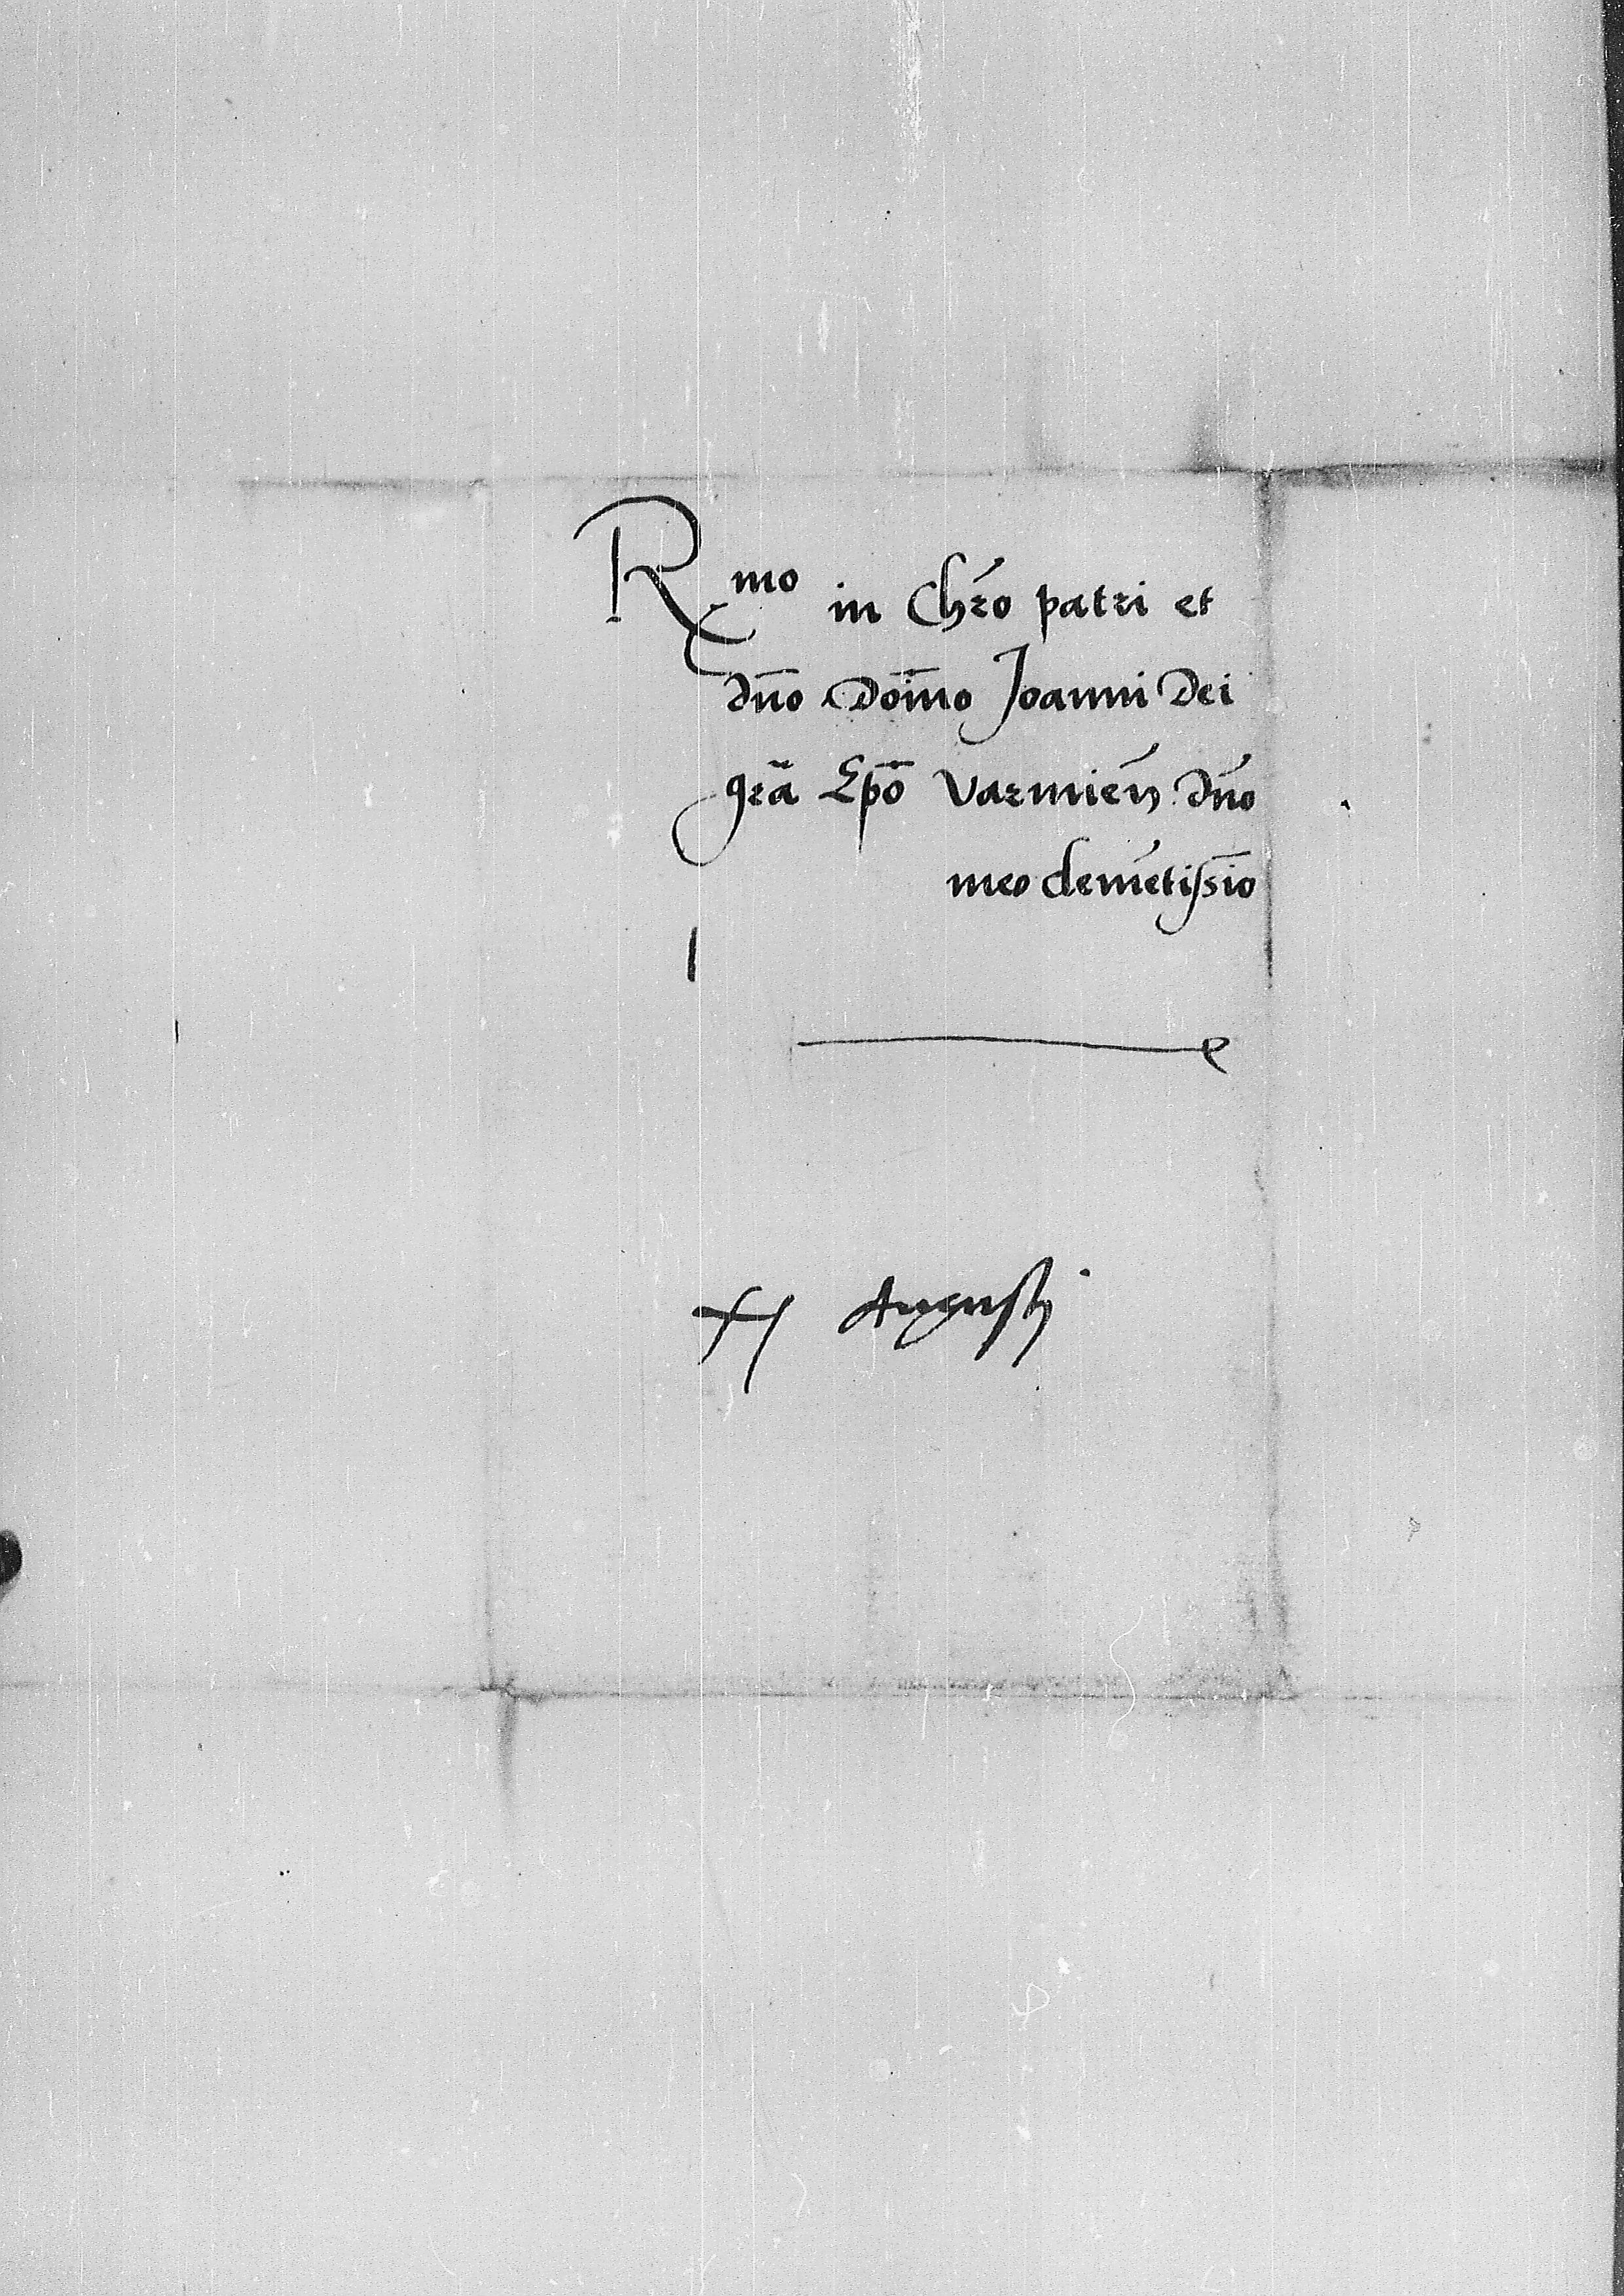 Rmo in Chro patri et
dno Domino Joanni Dei
gra Epo Varmien dno
meo clemetissio
XI Augusti